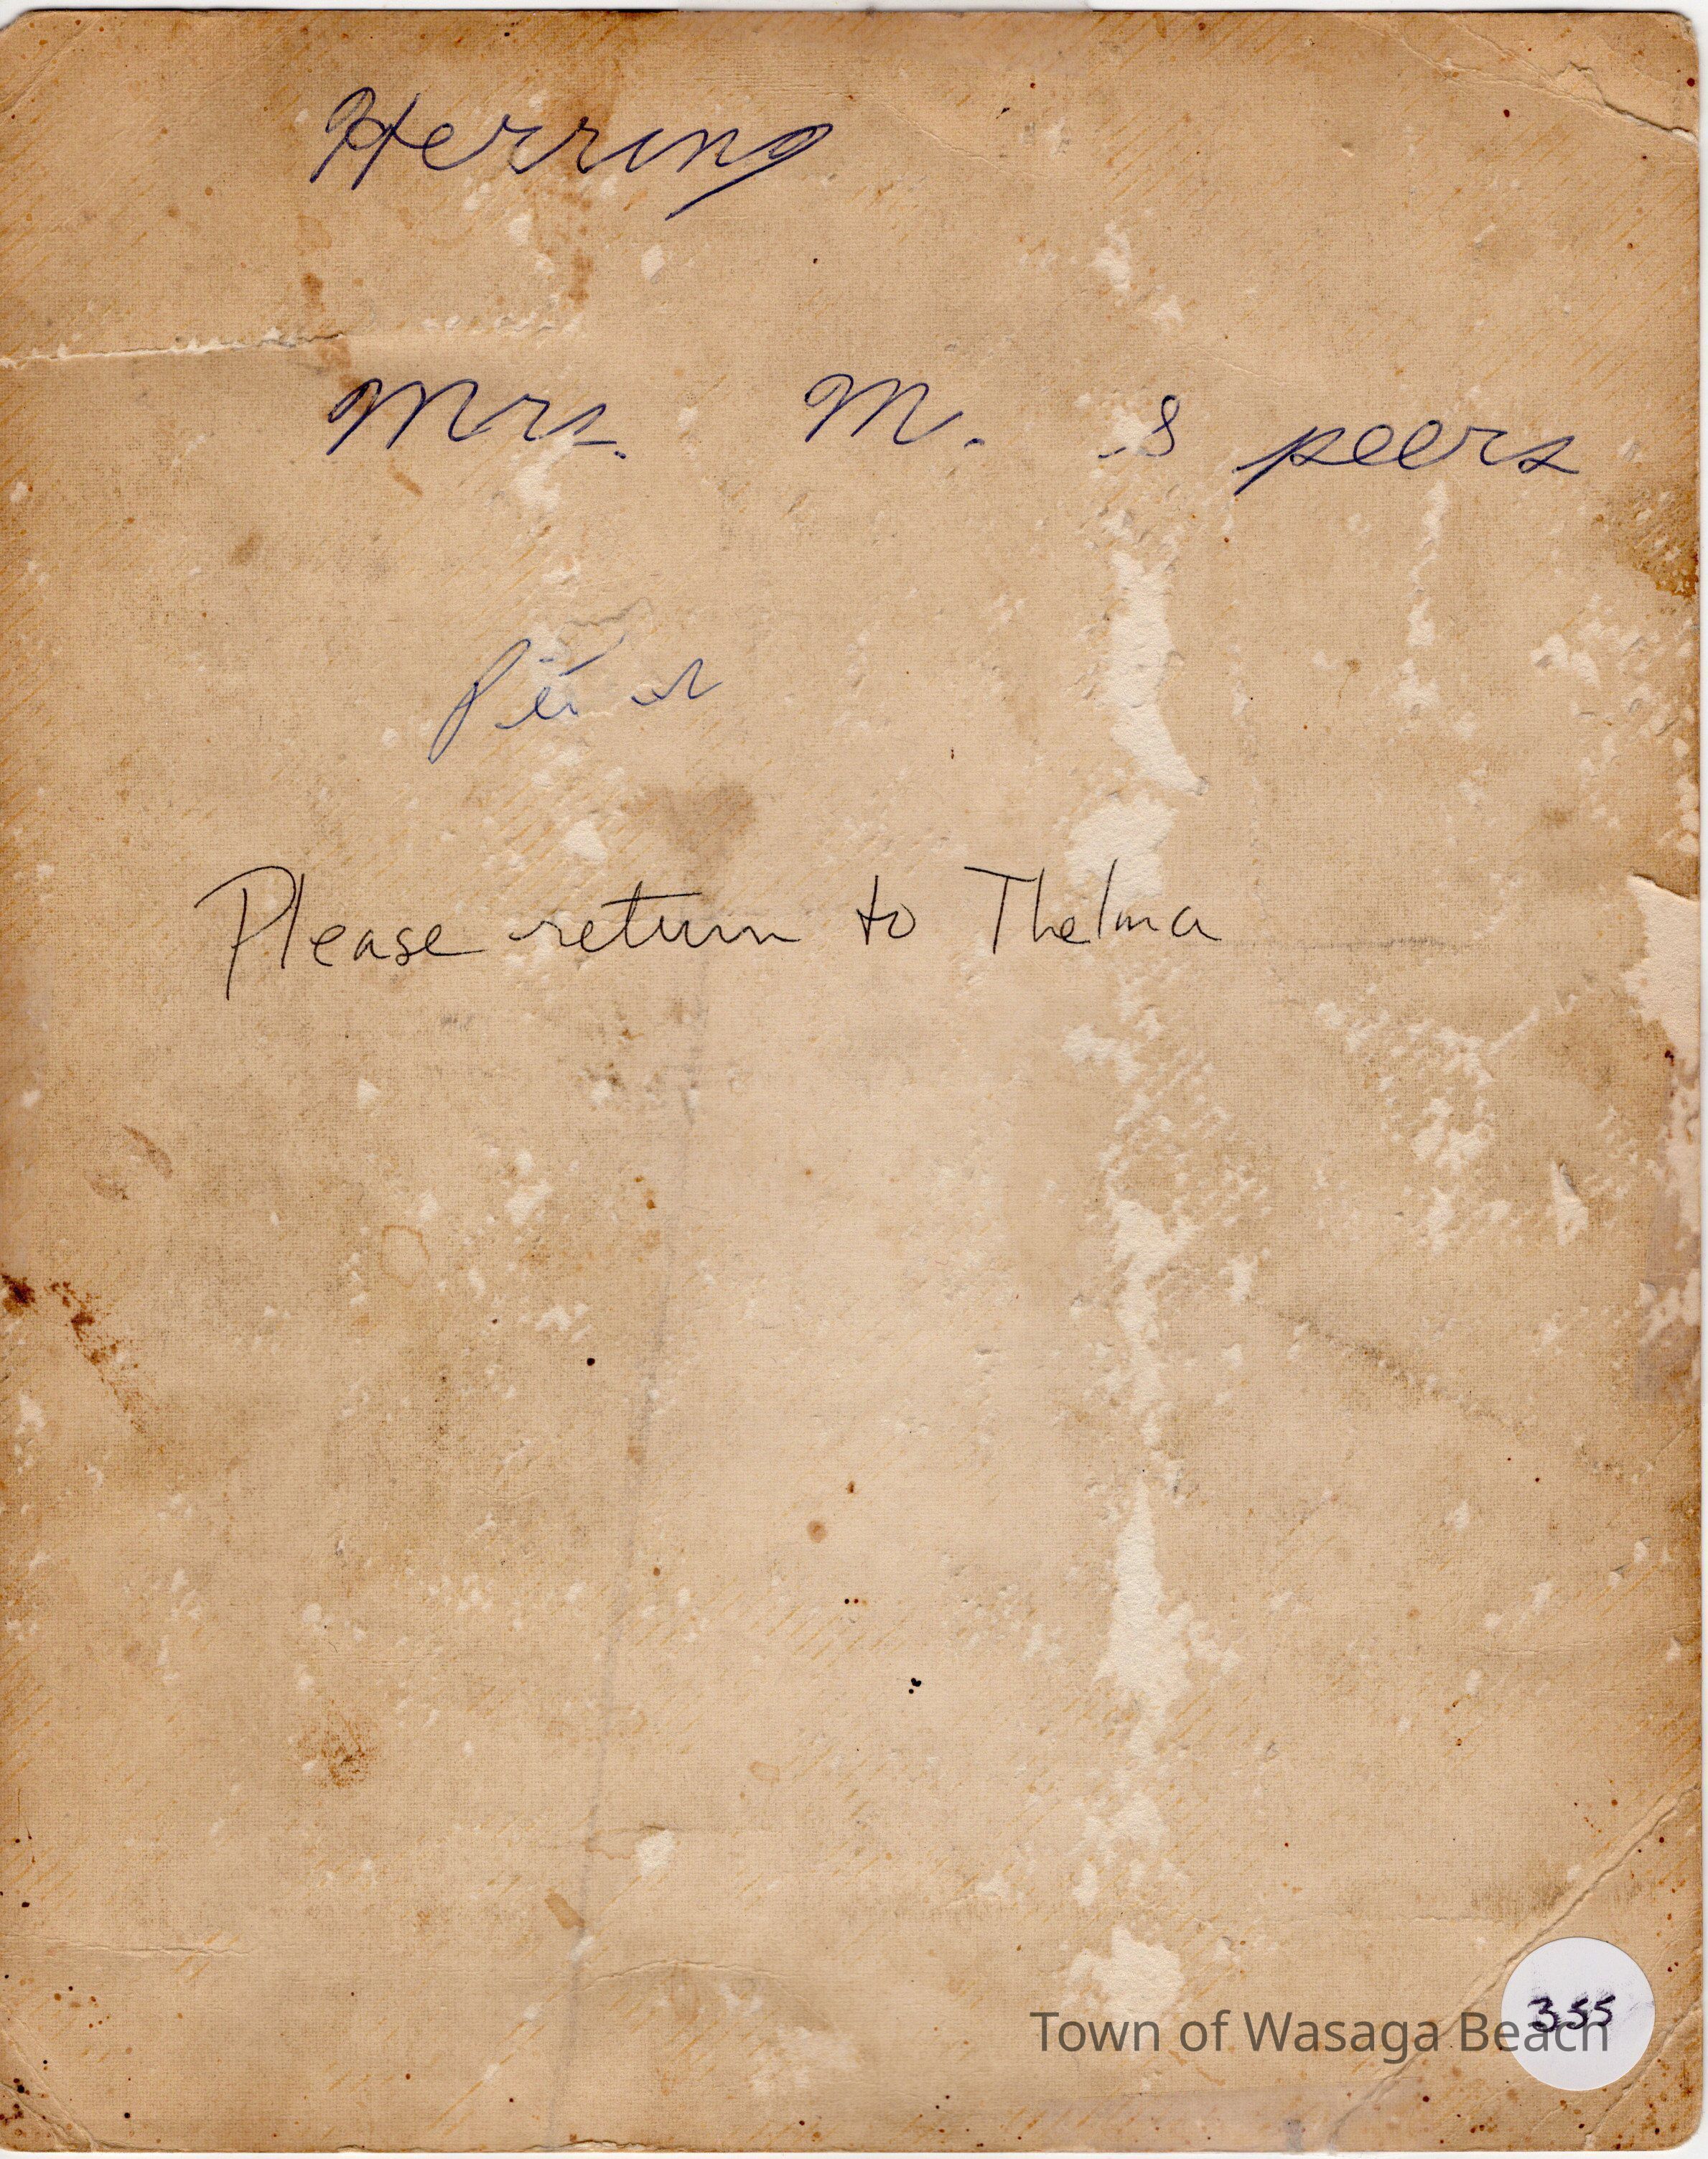 Herring
Mrs. M. Speers
Please return to Thelma
355
Town of Wasaga Beach